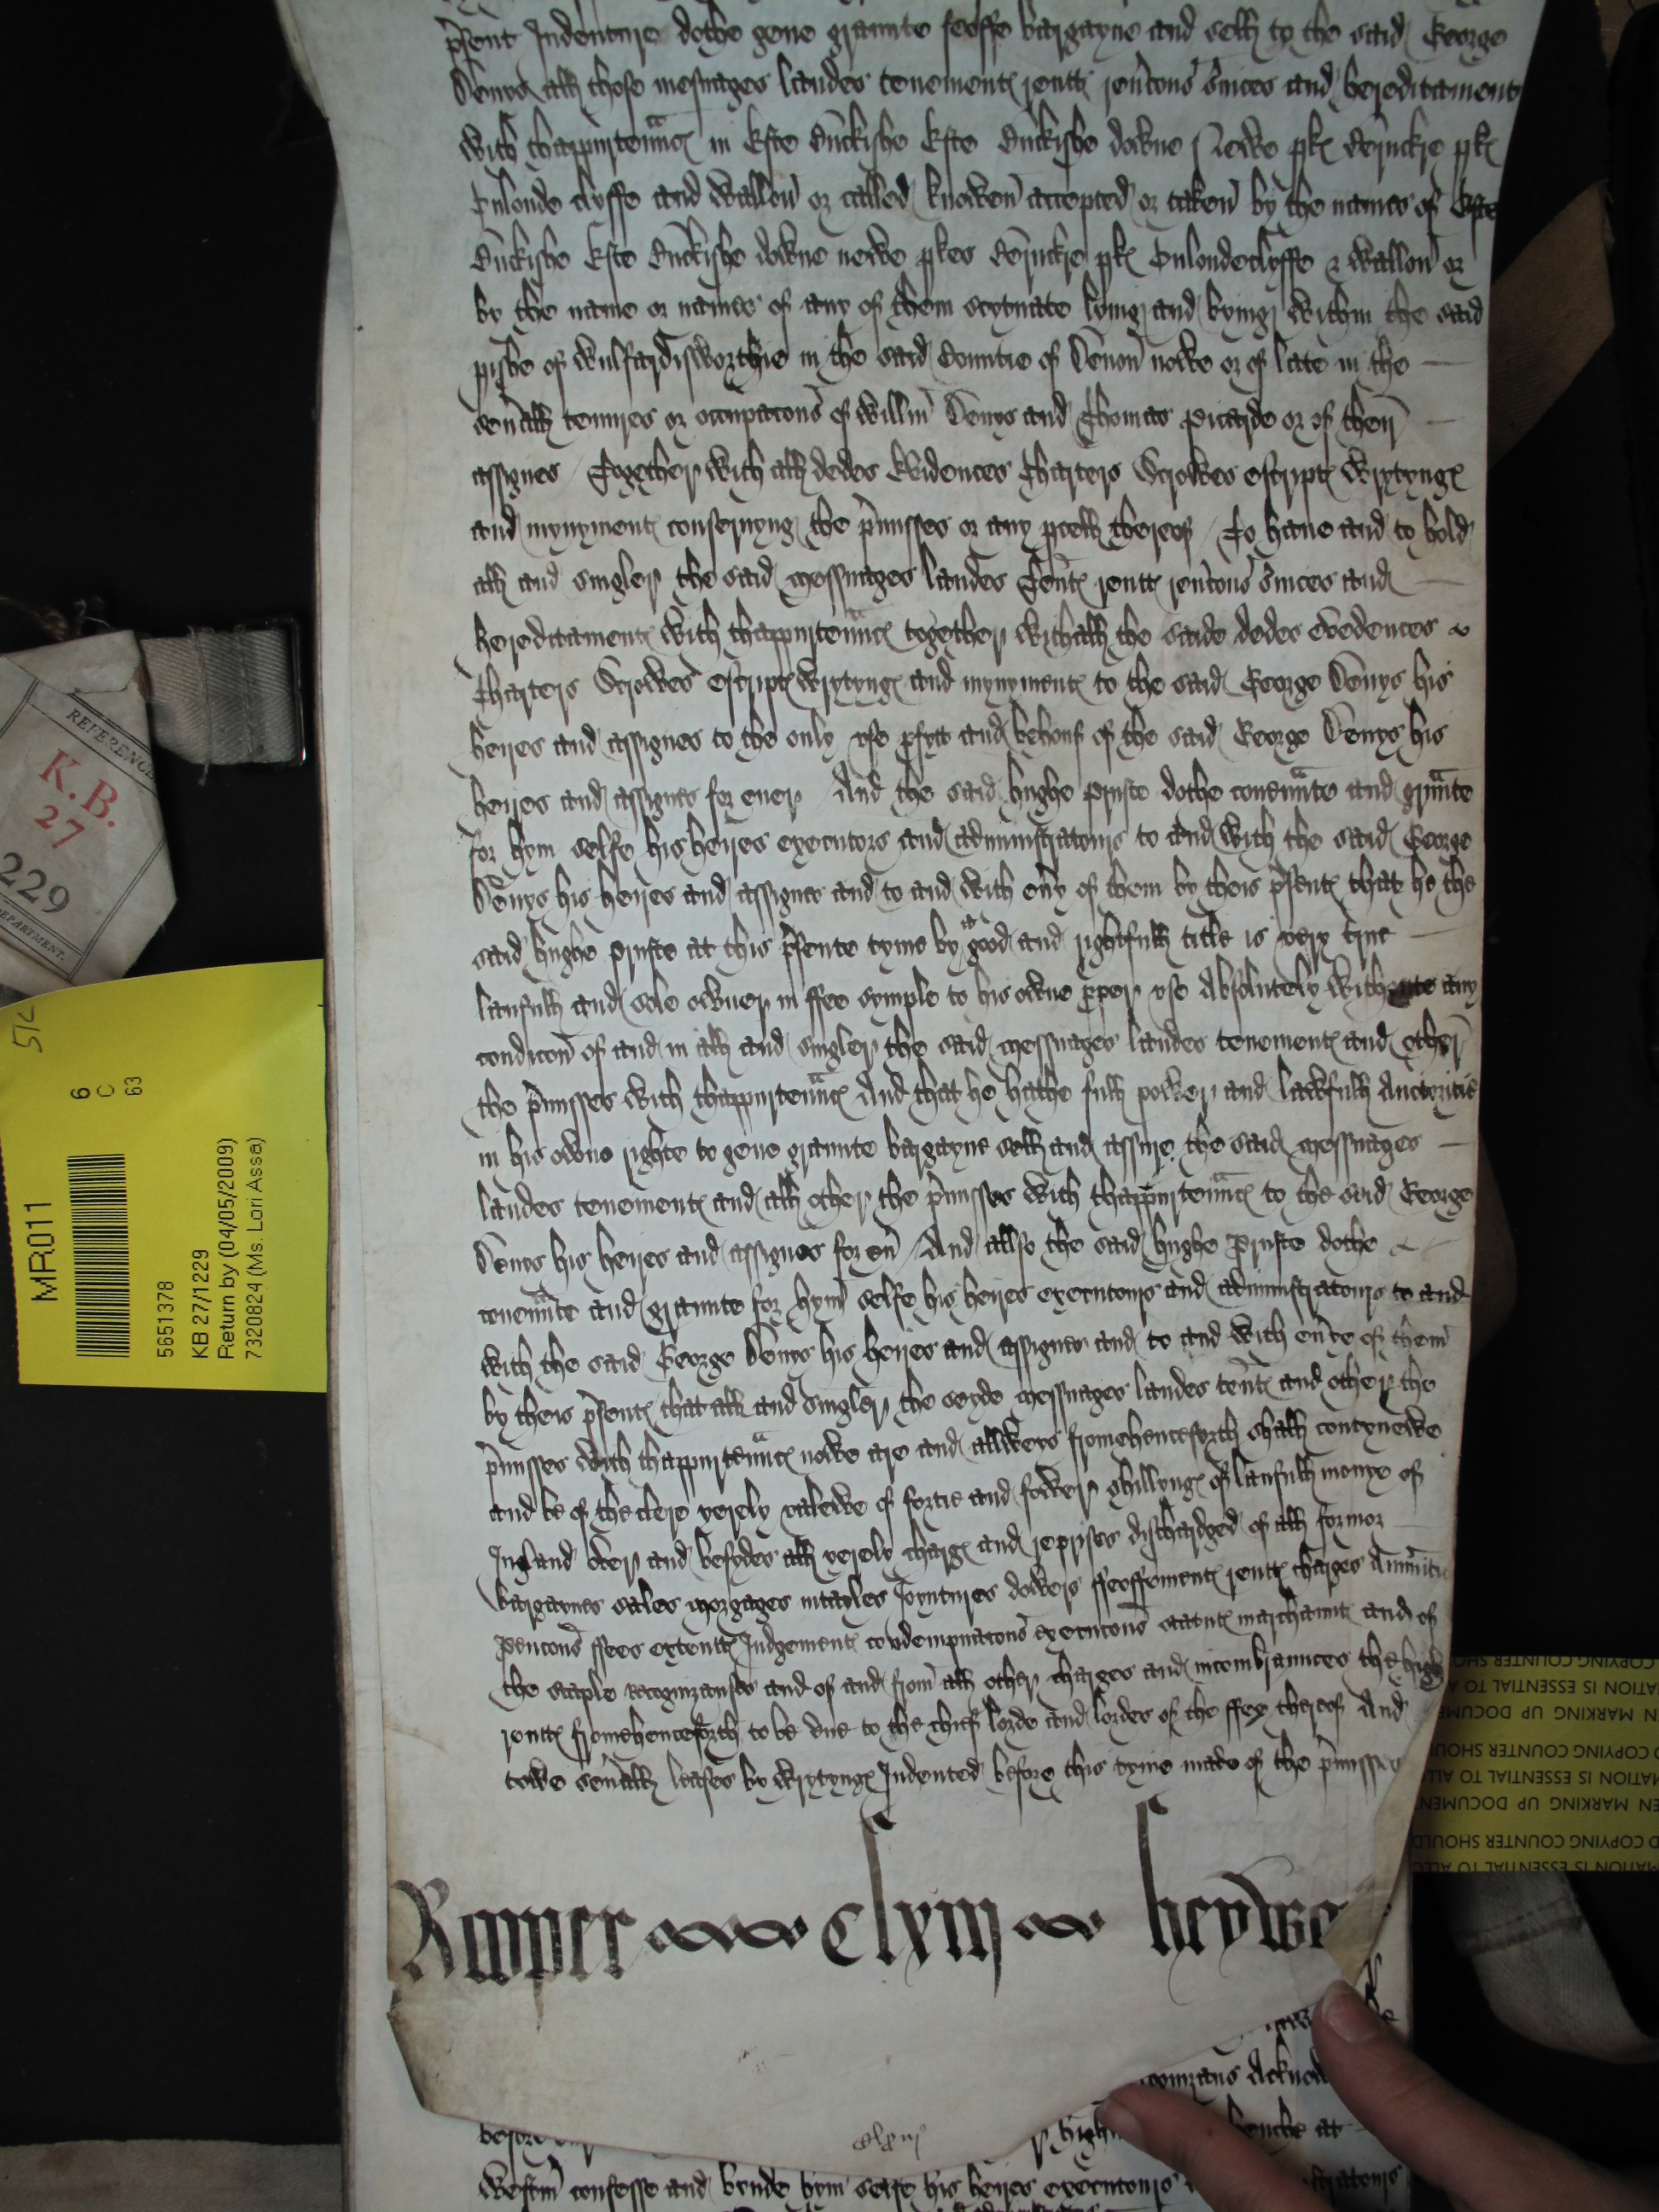 p̃sent Indenture dothe geve graunte feoffe bargayne and sell to the said George
Denys all those mesuages landes tenementꝭ rentꝭ reũcons s̃uices and hereditamentꝭ
with thappurten̄ncꝭ in Este Este downe Newe pkꝭ pkꝭ
clyffe and Wallon̄ or called knowen̄ accepted or taken̄ by the names of Este
Este downe newe pkes pkꝭ & Wallon̄ or
by the name or names of any of them scytuate lyinge and byinge within the said
pishe of Wulfardisworthie in the said Countie of Devon̄ nowe or of late in the
sev̄all tenures or occupacons of Willm̄ Denys and Thomas or of their
assignes Together with all dedes Evidences Charters Scrowes escriptꝭ wrytyngꝭ
and mynymentꝭ consernyng the p̃misses or any pcell thereof To have and to hold
all and singler the said messuages landes ten̄tꝭ rentꝭ rev̄cons s̃uices and
hereditamentꝭ with thappurten̄ncꝭ together withall the saide dedes evedences
Charters Scrowes escriptꝭ wrytyngꝭ and mynymentꝭ to the said George Denys his
heires and assignes to the only use pfytt and behouf of the said George Denys his
heires and assignes for ever And the said hughe Pruste dothe covennte and grannte
for hym selfe his heires executors and administratours to and with the said George
Denys his heires and assignes and to and with ev̄y of them by theis p̃sentꝭ that he the
said hughe pruste at this p̃sente tyme by good and rightfull title is very true
laufull and sole owner in ffee symple to his owne pper use Absolutely withoute any
condicon̄ of and in all and singler the said messuages landes tenementꝭ and other
the p̃misses with thappurten̄ncꝭ And that he hathe full power and lawfull Auctoritie
in his owne righte to geve graunte bargayne sell and assure the said messuages
landes tenementꝭ and all other the p̃misses with thappurten̄ncꝭ to the said George
Denys his heires and assignes for ev̄ And allso the said hughe Pruste dothe
covennte and graunte for hym̄ selfe his heires executours and administratours to and
with the said George Denys his heires and assignes and to and with ev̄ye of them̄
by theis p̃sentꝭ that all and singler the seyde messuages landes ten̄tꝭ and other the
p̃misses with thappurten̄ncꝭ nowe are and allweys fromehenceforth shall contynewe
and be of the clere yerely valewe of fortie and fower shillyngꝭ of laufull monye of
Ingland over and besydes all yerely chargꝭ and reprises dischardged of all former
bargaynes sales morgages intayles Joyntures dowers ffeoffementꝭ rentꝭ charges
ffees extentꝭ Judgementꝭ condempnacons execucons statutꝭ marchauntꝭ and of
the staple recognizanses and of and from̄ all other charges and incombraunces the high
rentꝭ fromehenceforth to be due to the chief lorde and lordes of the ffee thereof And
towe sev̄all leases by wrytyngꝭ Indented before this tyme made of the p̃misses
Rooper clxiij heywo
clxiij
Acknow
before high benche at
Westm̄ confesse and bynde hym selfe his heires executours
REFERENCE
K.B.
27
1229
DEPARTMENT.
MR011
6
C
63
5651378
KB 27/1229
Return by (04/05/2009)
7320824 (Ms. Lori Assa)
COPYING COUNTER SHO
MATION IS ESSENTIAL TO A
N MARKING UP DOCUM
D COPYING COUNTER SHOU
MATION IS ESSENTIAL TO ALL
EN MARKING UP DOCUMEN
D COPYING COUNTER SHOULD
MATION IS ESSENTIAL TO ALLO